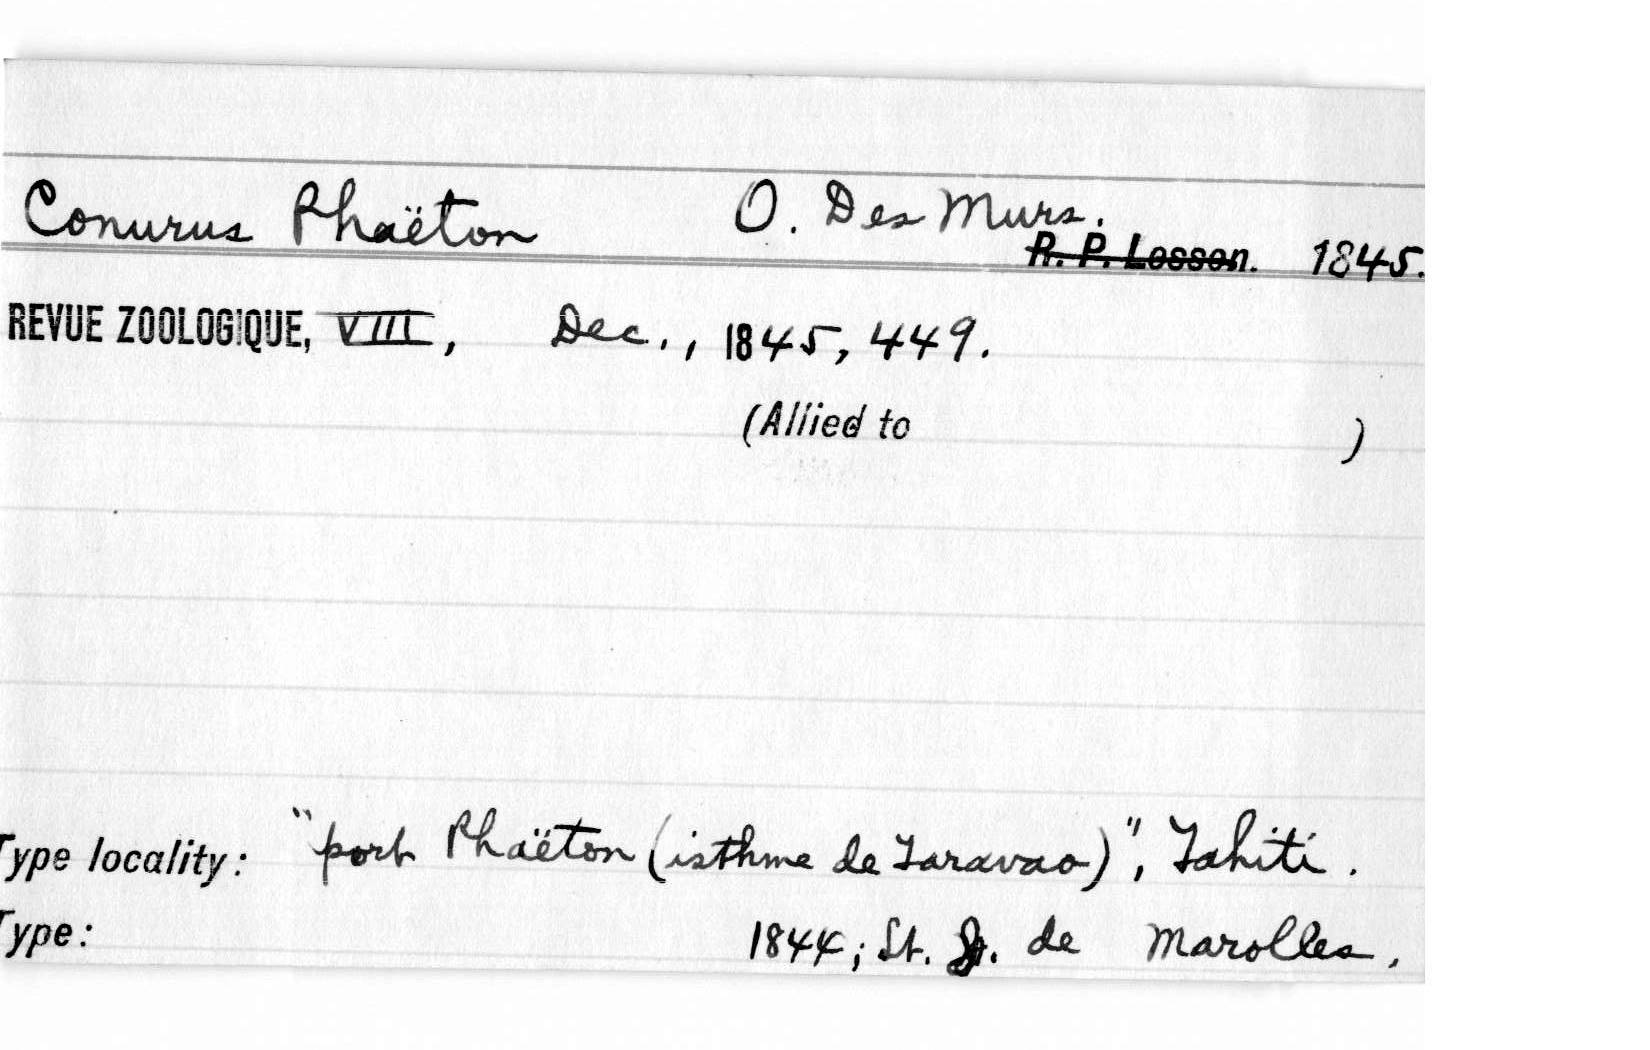 Conurus Phaëton O. Des Murs.
R. P. Lesson. 1845.
REVUE ZOOLOGIQUE, VIII, Dec., 1845, 449.
(Allied to )
Type locality: "port Phaëton (isthme de Taravao)", Tahiti.
Type: 1844; Lt. de Marolles.